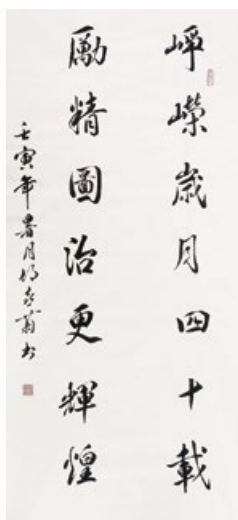 崢嶸歲月四十載
勵精圖治更輝煌
壬寅年暑月